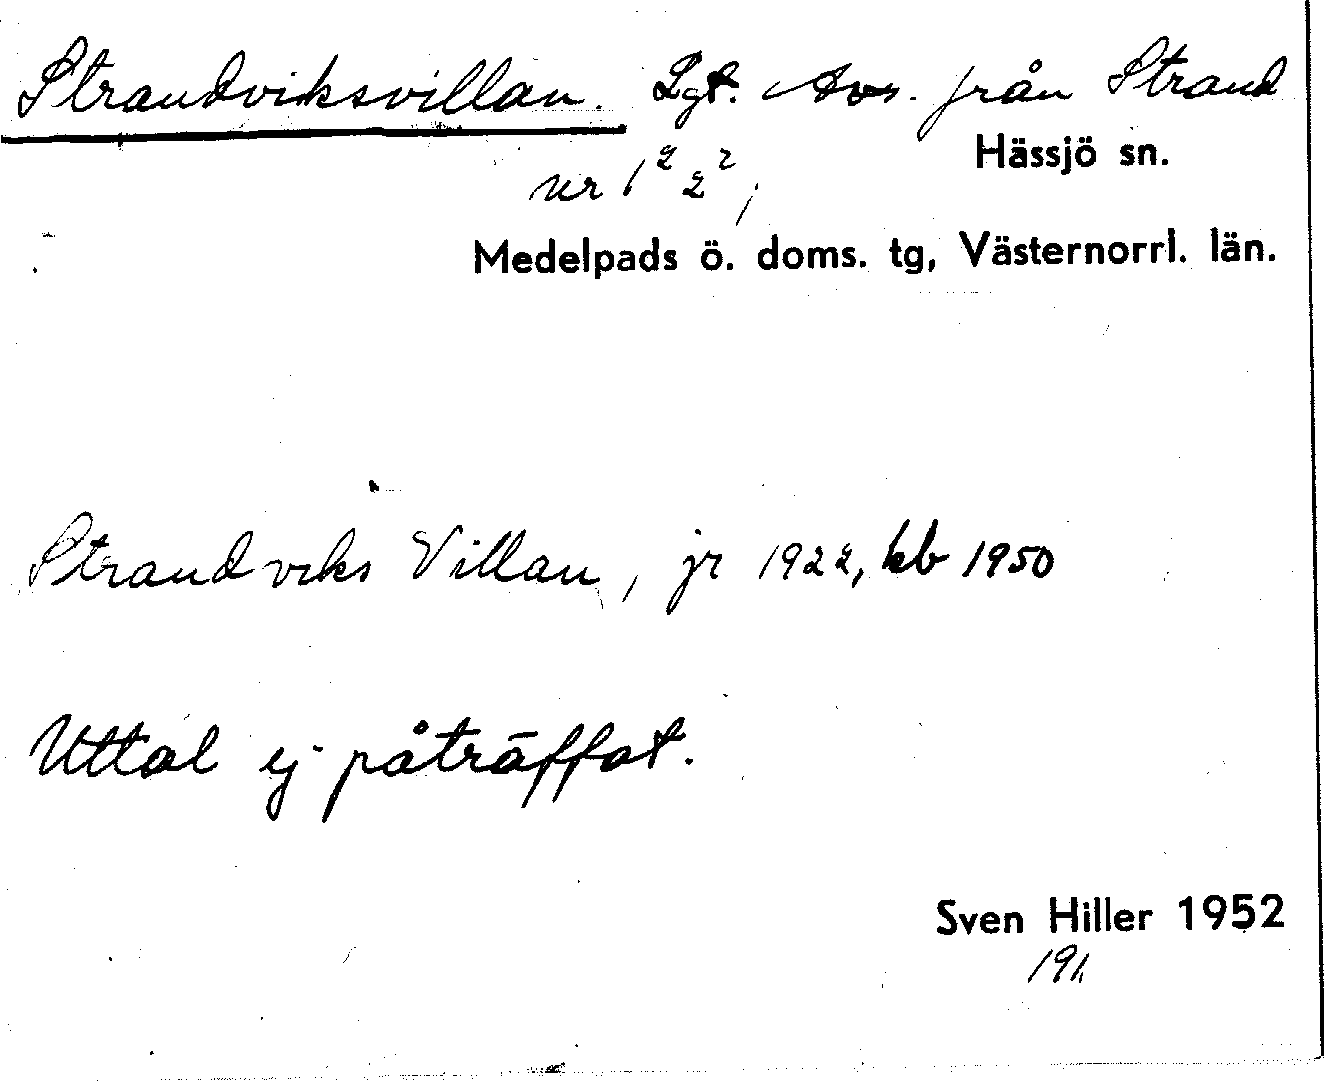 Strandviksvillan. Lgt. Avs. från Strand
Hässjö sn.
nr 1² 2²,
Medelpads ö. doms. tg, Västernorrl. län.
Strandviks Villan, jr 1922, kb 1950
Uttal ej påträffat.
Sven Hiller 1952
191.